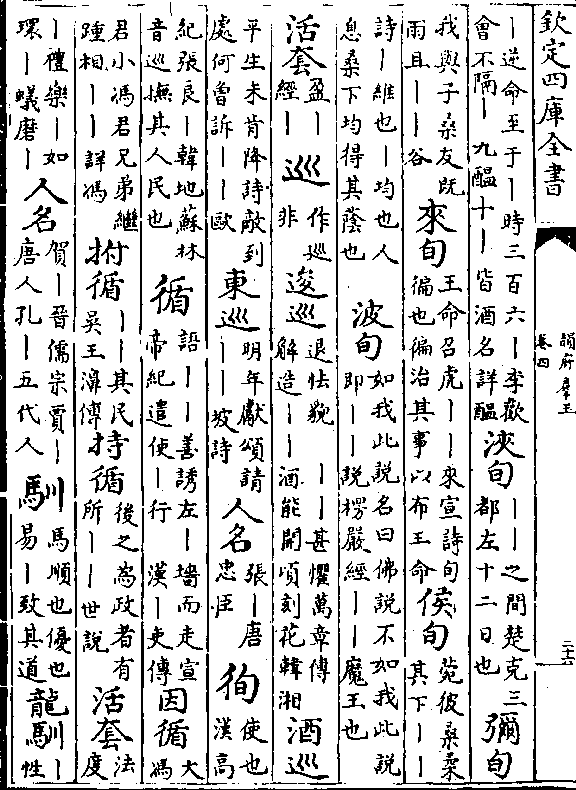 欽定四庫全書 韻府羣玉 卷四 二十六
丨逆命至于丨時三百六丨李歡
會不隔丨九醞十丨皆酒名詳醞
浹旬
丨丨之間楚克三
都左十二日也
彌旬
我與子桑友既
雨且丨丨谷
來旬
王命召虎丨丨來宣詩旬
徧也徧治其事以布王命
侯旬
菀彼桑桑
其下丨丨
詩丨維也丨均也人
息桑下均得其蔭也
波旬
如我此說名曰佛說不如我此說
即丨丨說楞嚴經丨丨魔王也
活套
盈丨
經丨
巡
作廵
非
逡巡
退怯貌 丨丨甚懼萬章傳
解造丨丨酒能開頃刻花韓湘
酒巡
平生未肯降詩敵到
處何曾訴丨丨歐
東巡
明年獻頌請
丨丨坡詩
人名
張丨唐
忠臣
徇
使也
漢高
紀張良丨韓地蘇林
音巡撫其人民也
循
語丨丨善誘左丨墻而走宣
帝紀遣使丨行漢丨吏傳
因循
大
馮
君小馮君兄弟繼
踵相丨丨詳馮
拊循
丨丨其民
吳王濞傳
持循
後之為政者有
所丨丨世說
活套
法
度
丨禮樂丨如
環丨蟻磨丨
人名
賀丨晉儒宗賈丨
唐人孔丨五代人
馴
馬順也優也
易丨致其道
龍馴
丨
性